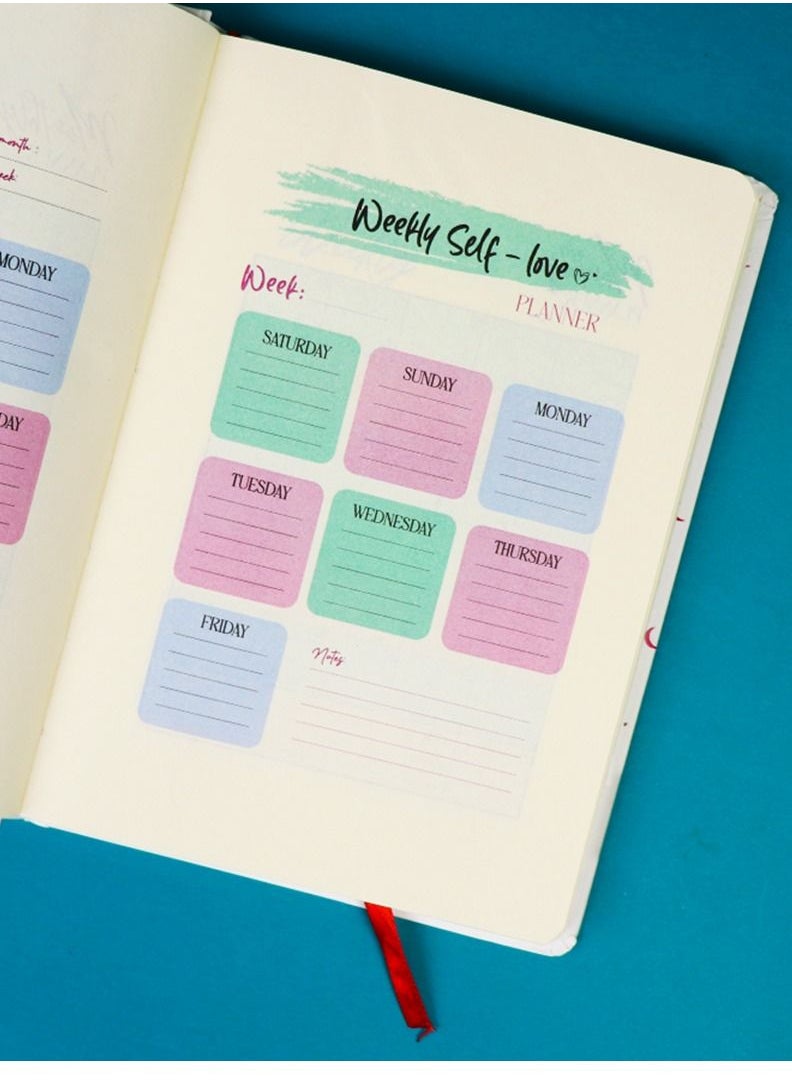 month :
MONDAY
DAY
Weekly Self - love
PLANNER
Week:
SATURDAY
SUNDAY
MONDAY
TUESDAY
WEDNESDAY
THURSDAY
FRIDAY
Notes